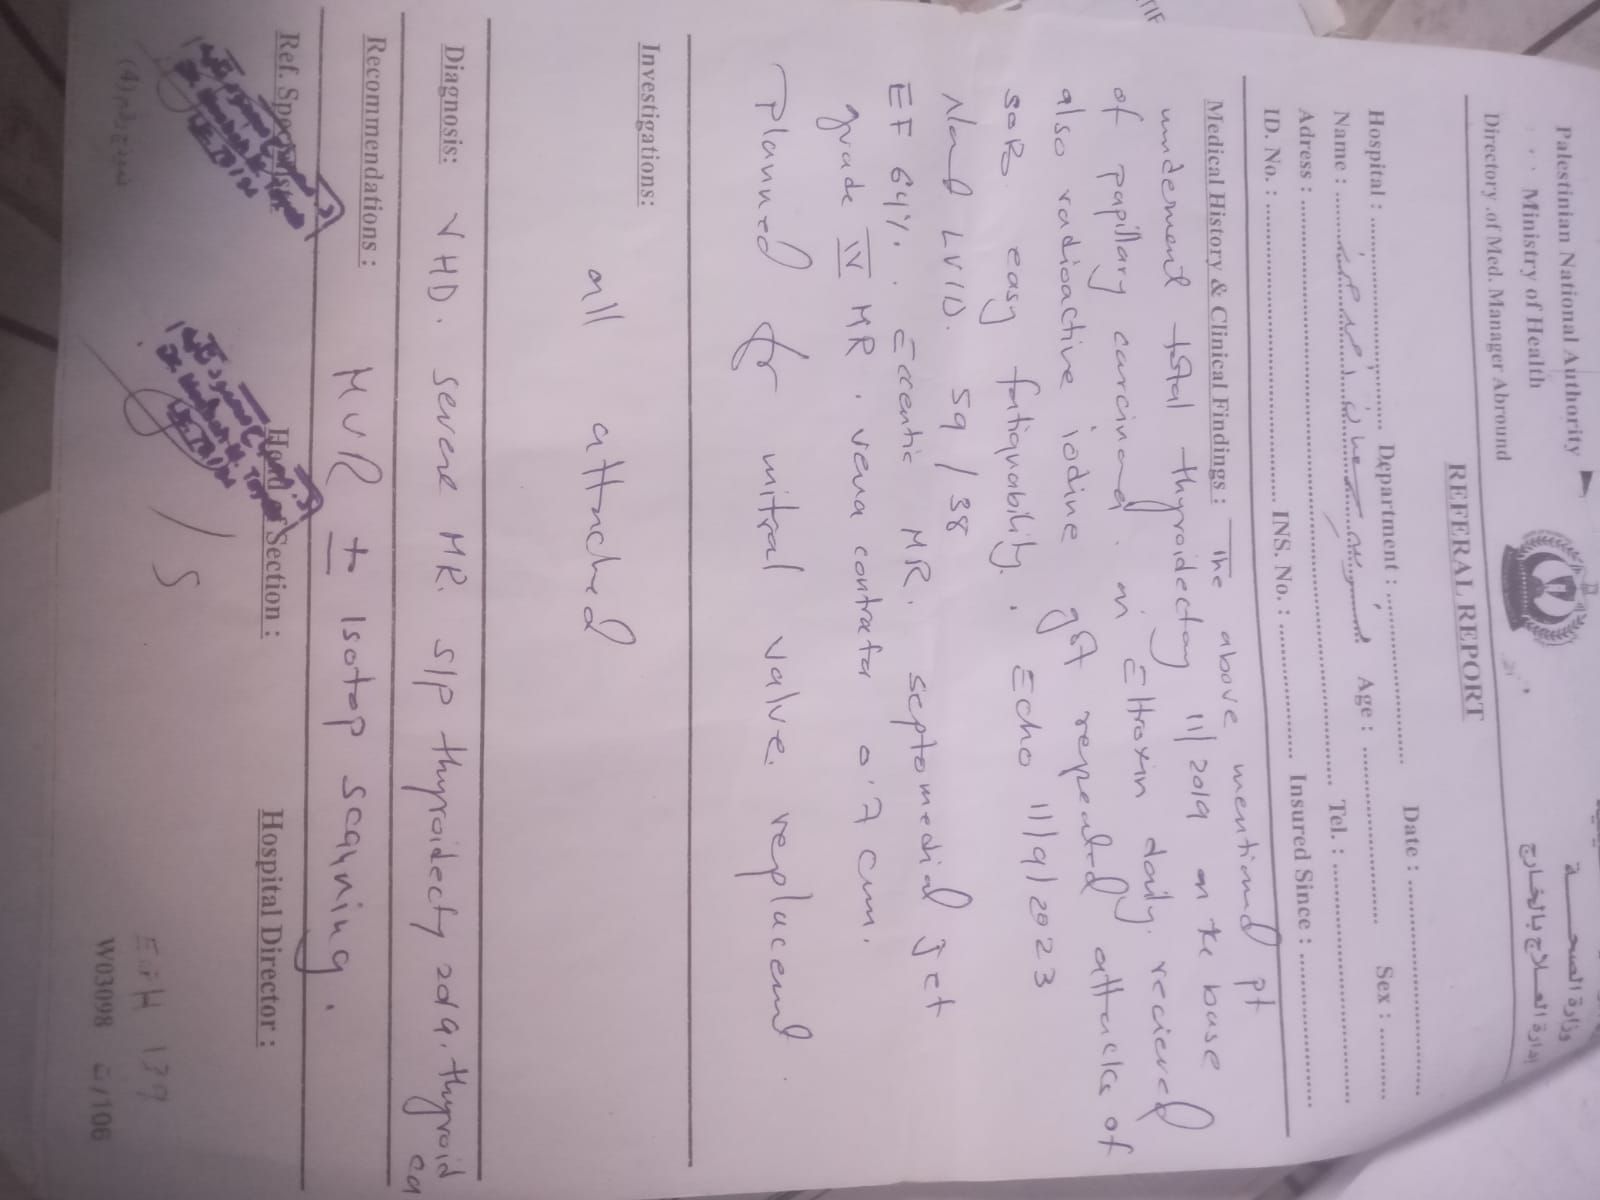 Palestinian National Authority
Ministry of Health
Directory .of Med. Manager Abround
وزارة الصحـــــة
إدارة العـــلاج بالخــارج
REFERAL REPORT
Date :
Hospital : Department :
Name : Age : Sex :
Adress : Tel. :
ID. No. : INS. No. : Insured Since :
Medical History & Clinical Findings : The above mentiond pt
underwent total thyroidectomy 11/2019 on the base
of papillary carcinoma. on Eltroxin daily. recieved
also radioactive iodine got repeated attacks of
SOB easy fatiquability. Echo 11/9/2023
LVID. 59/38
EF 64%. Eccentic MR. septomedial jet
grade IV MR. vena contrata 0.7 cm.
Planned for mitral valve replacement.
Investigations:
all attached
Diagnosis: VHD. severe MR. S/P thyroidecty 2d 9. thyroid ca
Recommendations : MVR ± Isotop scanning.
Ref. Specialist Head of Section : Hospital Director :
(4)
W03098